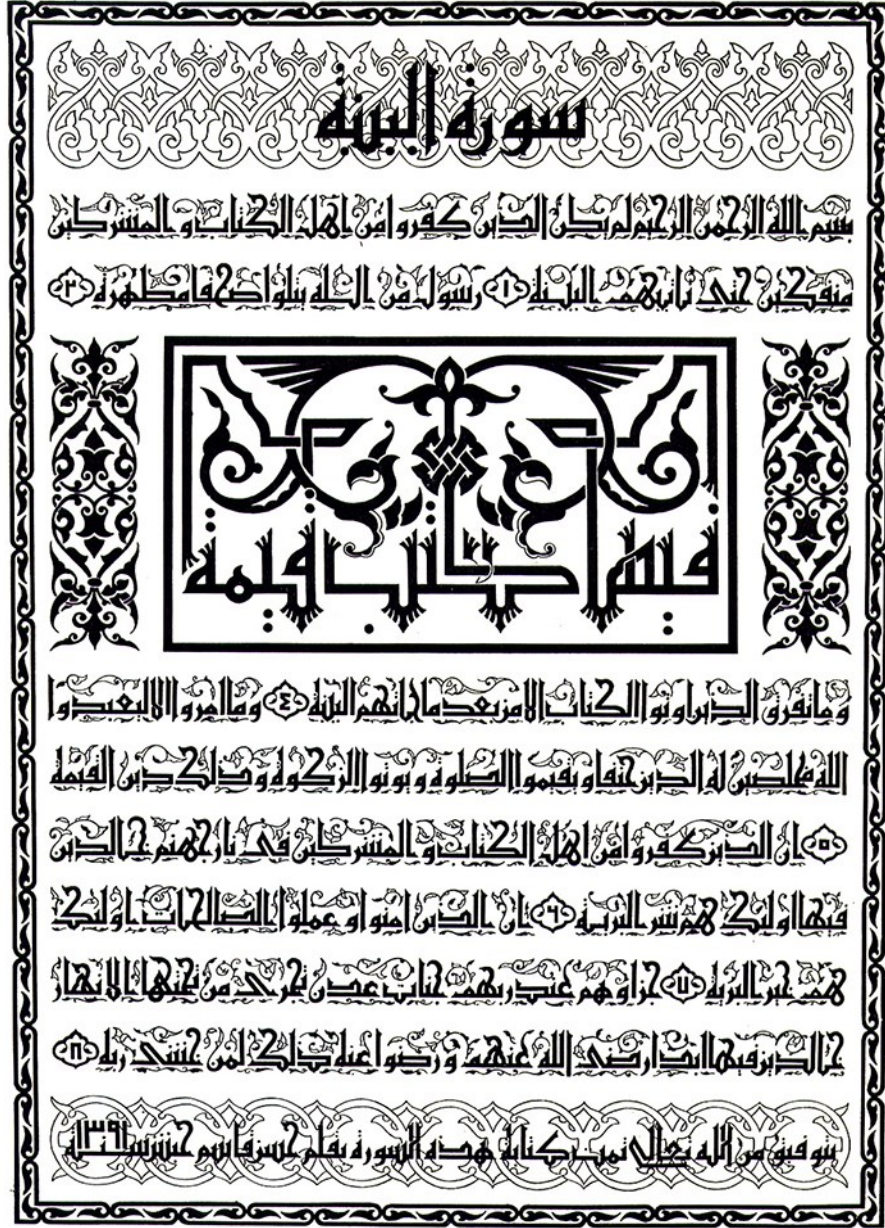 سورة البينة
بسم الله الرحمن الرحيم لم يكن الذين كفروا من اهل الكتاب و المشركين
منفكين حتى تاتيهم البينة ١ رسول من الله يتلوا صحفا مطهرة ٢
فيها كتب قيمة
و ما تفرق الذين اوتوا الكتاب الا من بعد ما جائتهم البينة ٤ و ما امروا الا ليعبدوا
الله مخلصين له الدين حنفا و يقيموا الصلوة و يوتوا الزكوة و ذلك دين القيمة
٥ ان الذين كفروا من اهل الكتاب و المشركين في نار جهنم خالدين
فيها اولئك هم شر البرية ٦ ان الذين امنوا و عملوا الصالحات اولئك
هم خير البرية ٧ جزاوهم عند ربهم جنات عدن تجري من تحتها الانهار
خالدين فيها ابدا رضي الله عنهم و رضوا عنه ذلك لمن خشي ربه ٨
بتوفيق من الله تعالى تمت كتابة هذه السورة بقلم حسن قاسم حبش سنة ١٣٩١